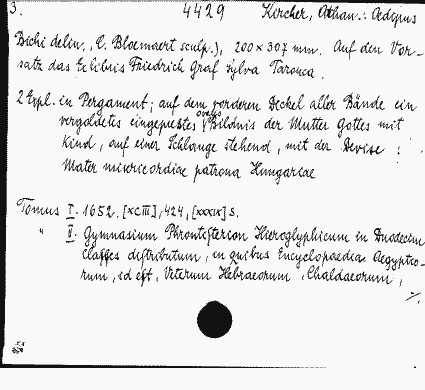 3. 4429 Kircher, Athan.: Aedipus
Bichi delin., C. Bloemaert sculp.), 200 x 307 mm. Auf den Vor-
satz das Exlibris Friedrich Graf Sylva Tarouca.
2 Expl. in Pergament; auf dem vorderen Deckel aller Bände ein
vergoldetes eingepreßtes ovales Bildnis der Mutter Gottes mit
Kind, auf einer Schlange stehend, mit der Devise:
Mater misericordiae patrona Hungariae
Tomus I. 1652. [XCIII], 424, [XXXIX] S.
" II. Gymnasium Phrontisterion Hieroglyphicum in Duodecim
Classes distributum, in quibus Encyclopaedia Aegyptio-
rum, id est, Veterum Hebraeorum, Chaldaeorum,
./.